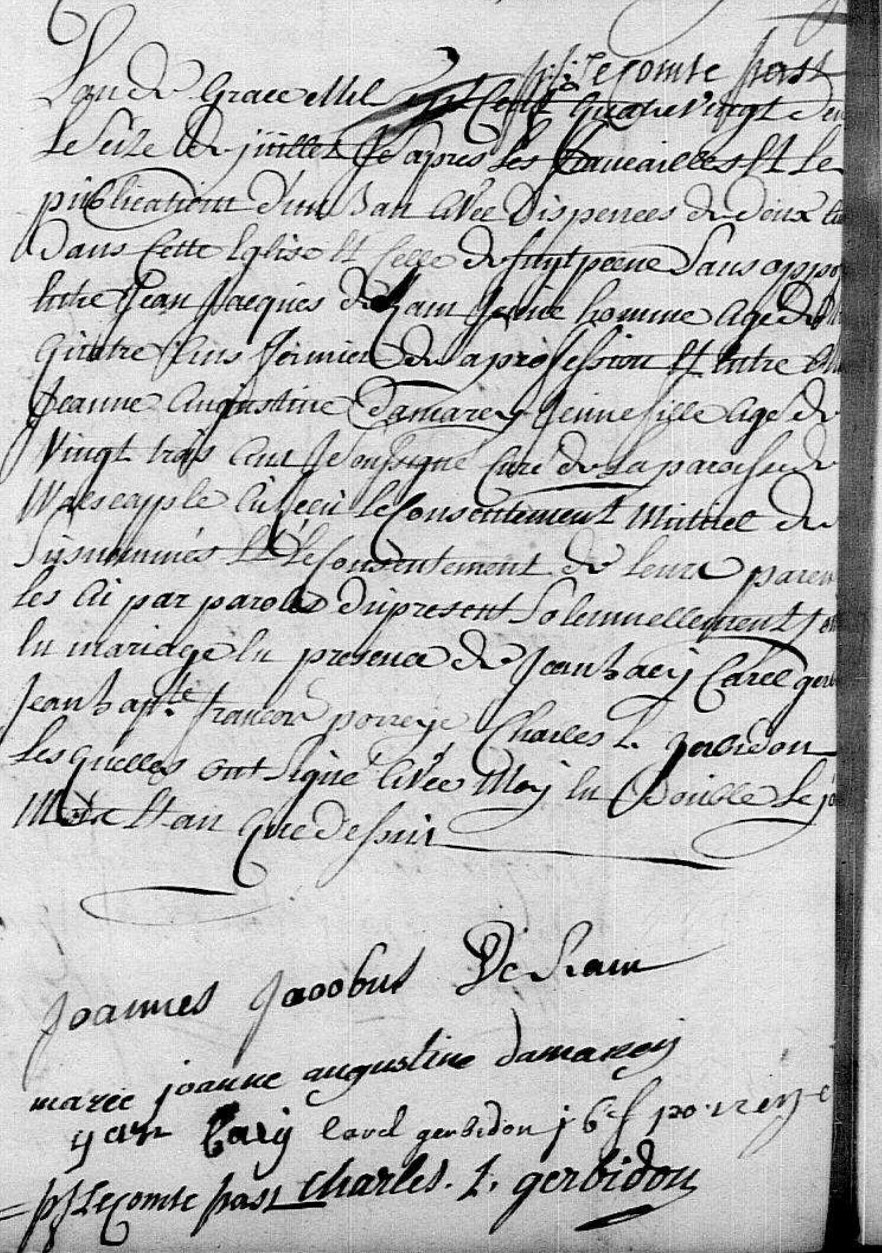 p: j: le Comte past
L'an de Grace Mil sept Cent Quatre Vingt Deu
Le Seize de juillet Je apres les fiancailles Et Le
publication d'un Ban avée Dispences de deux
dans Cette Eglise Et Celle de Sans oppo
Entre Jean Jacques de Ram Jeune homme agé de
Quatre Ans fermier de la profession Et Entre
Jeanne Augustine Damarey Jeune fille Age de
Vingt trois Ans Je Soussigné Curé de La paroisse de
Walscapple ai Recu Le Consentement Mutuel de
Susnommés Et Le Consentement de leurs paren
les ai par paroles du present Solemnellement jo
En mariage En presence de Jean baey Carel gerb
Jean bapte francois porreye Charles L. gerbidon
Les Quelles ont Signé avée Moy En Double Le jo
Mois Et an Que Dessus
Joannes Jacobus De Ram
marie joanne augustine damarey
yan baey carel gerbidon j b f porreye
= pj LeComte past Charles. L. gerbidon